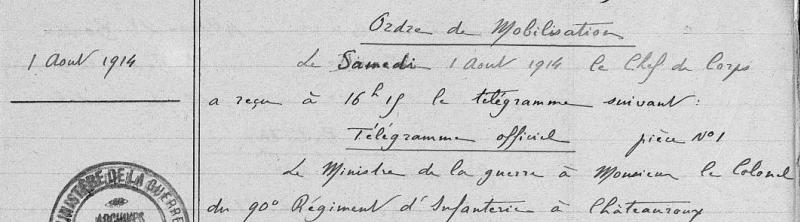 Ordre de Mobilisation
1 Aout 1914
Le Samedi 1 Aout 1914 le Chef de Corps
a reçu à 16h15 le télégramme suivant:
Télégramme officiel pièce No1
Le Ministre de la guerre à Monsieur le Colonel
du 90e Régiment d'Infanterie à Châteauroux
MINISTÈRE DE LA GUERRE
ARCHIVES